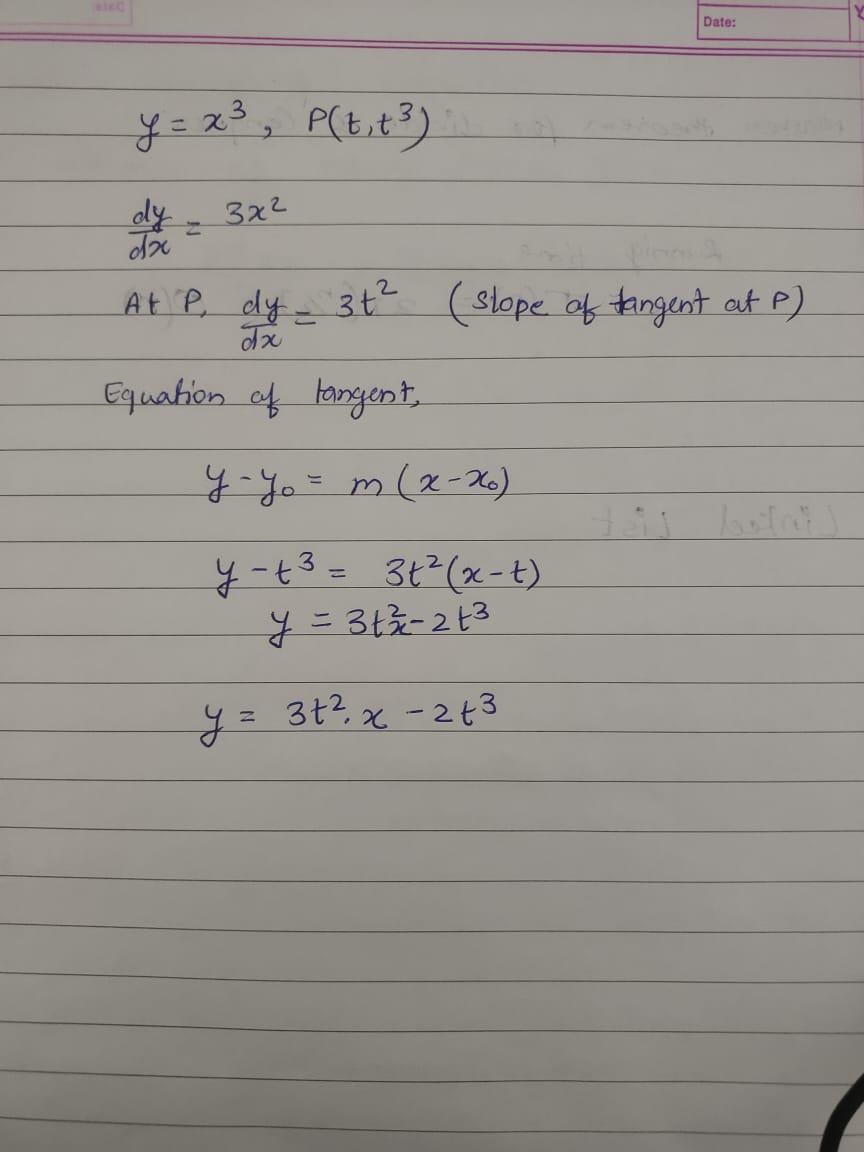 Date:
y = x³, P(t, t³)
dy/dx = 3x²
At P, dy/dx = 3t² (slope of tangent at P)
Equation of tangent,
y - y₀ = m(x - x₀)
y - t³ = 3t²(x - t)
y = 3t²x - 2t³
y = 3t².x - 2t³